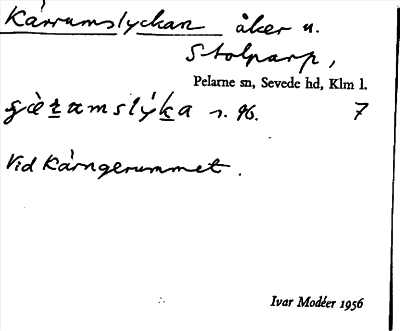 Kärrumslyckan åker u.
Stolparp,
Pelarne sn, Sevede hd, Klm l.
s. 96. 7
Vid Kärngerummet.
Ivar Modéer 1956